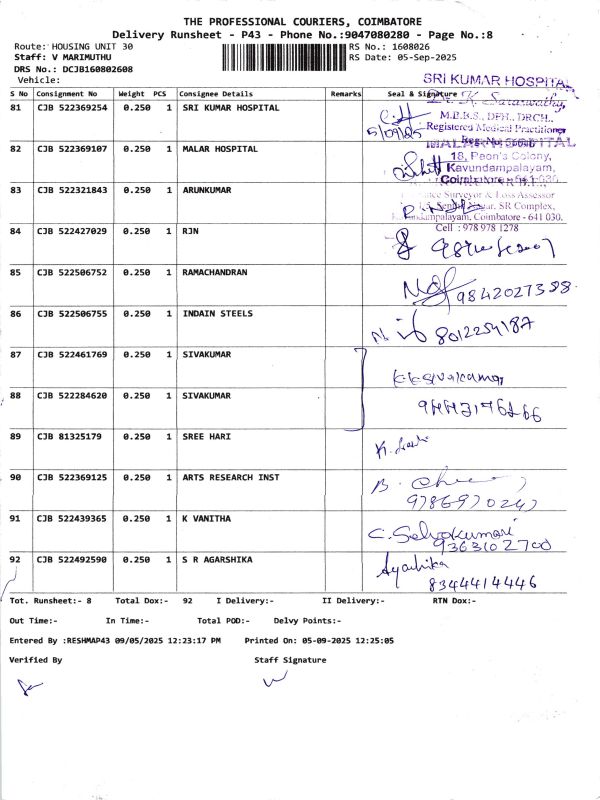 THE PROFESSIONAL COURIERS, COIMBATORE
Delivery Runsheet - P43 - Phone No.:9047080280 - Page No.:8
Route: HOUSING UNIT 30
Staff: V MARIMUTHU
DRS No.: DCJB160802608
Vehicle:
RS No.: 1608026
RS Date: 05-Sep-2025
S No Consignment No Weight PCS Consignee Details Remarks Seal & Signature
81 CJB 522369254 0.250 1 SRI KUMAR HOSPITAL
SRI KUMAR HOSPITAL
Dr. K. Saraswathy,
M.B.B.S., DPH., DRCH.,
Registered Medical Practitioner
5/09/25
82 CJB 522369107 0.250 1 MALAR HOSPITAL
MALAR HOSPITAL
18, Peon's Colony,
Kavundampalayam,
Coimbatore - 641 030.
83 CJB 522321843 0.250 1 ARUNKUMAR
Surveyor & Loss Assessor
Nagar, SR Complex,
Coimbatore - 641 030.
Cell : 978 978 1278
84 CJB 522427029 0.250 1 RJN
85 CJB 522506752 0.250 1 RAMACHANDRAN
9842027388
86 CJB 522506755 0.250 1 INDAIN STEELS
8012254187
87 CJB 522461769 0.250 1 SIVAKUMAR
88 CJB 522284620 0.250 1 SIVAKUMAR
89 CJB 81325179 0.250 1 SREE HARI
90 CJB 522369125 0.250 1 ARTS RESEARCH INST
9786970247
91 CJB 522439365 0.250 1 K VANITHA
C. Selvakumari
9363102700
92 CJB 522492590 0.250 1 S R AGARSHIKA
8344414446
Tot. Runsheet:- 8 Total Dox:- 92 I Delivery:- II Delivery:- RTN Dox:-
Out Time:- In Time:- Total POD:- Delvy Points:-
Entered By :RESHMAP43 09/05/2025 12:23:17 PM Printed On: 05-09-2025 12:25:05
Verified By Staff Signature